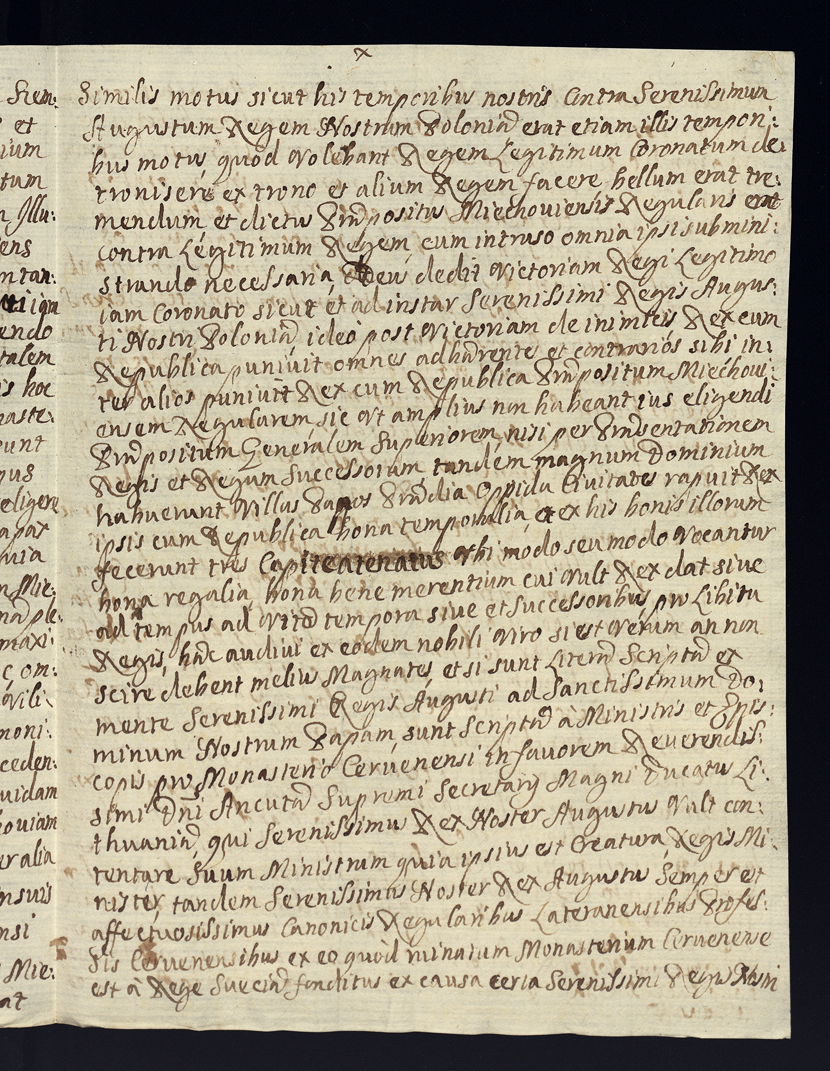 Similis motus sicut his temporibus nostris Contra Serenissimum
Augustum Regem Nostrum Poloniæ erat etiam illis tempori:
bus motus, quod Volebant Regem Legitimum Coronatum de:
tronisere ex trono et alium Regem facere bellum erat tre:
mendum et dictus Præpositus Miechoviensis Regularis erat
contra Legitimum Regem, cum intruso omnia ipsi submini:
strando necessaria, Deus dedit Victoriam Regi Legitimo
iam Coronato sicut et ad instar Serenissimi Regis Augus:
ti Nostri Poloniæ, ideo post Victoriam de inimicis Rex cum
Republica punivit omnes adhærentes et contrarios sibi in:
ter alios punivit Rex cum Republica Præpositum Miechovi:
ensem Regularem sic Vt amplius non habeant ius eligendi
Præpositum Generalem Superiorem, nisi per Præsentationem
Regis et Regum Successorum tandem magnum Dominium
habuerunt Villas Pagos Prædia Oppida Civitates rapuit Rex
ipsis cum Republica bona temporalia, et ex his bonis illorum
fecerunt tres Vbi modo seu modo Vocantur
bona regalia, bona bene merentium cui Vult Rex dat siue
ad tempus ad Vitæ tempora siue et Successoribus pro Libitu
Regis, hæc audivi ex eodem nobili Viro si est Verum an non
scire debent melius Magnates et si sunt Literæ Scriptæ et
mente Serenissimi Regis Augusti ad Sanctissimum Do:
minum Nostrum Papam, sunt Scriptæ à Ministris et Epis:
copis pro Monasterio Cervenensi in favorem Reverendis:
simi Dni Ancutæ Supremi Secretarij Magni Ducatus Li:
thuaniæ, qui Serenissimus Rex Noster Augustus Vult con:
tentare Suum Ministrum quia ipsius est Creatura, Regis Mi:
nister tandem Serenissimus Noster Rex Augustus Semper et
affectuosissimus Canonicis Regularibus Lateranensibus Profes:
sis Cervenensibus ex eo quòd minatum Monasterium Cervenense
est à Rege Sueciæ funditus ex causa certa Serenissimi Regis Nostri